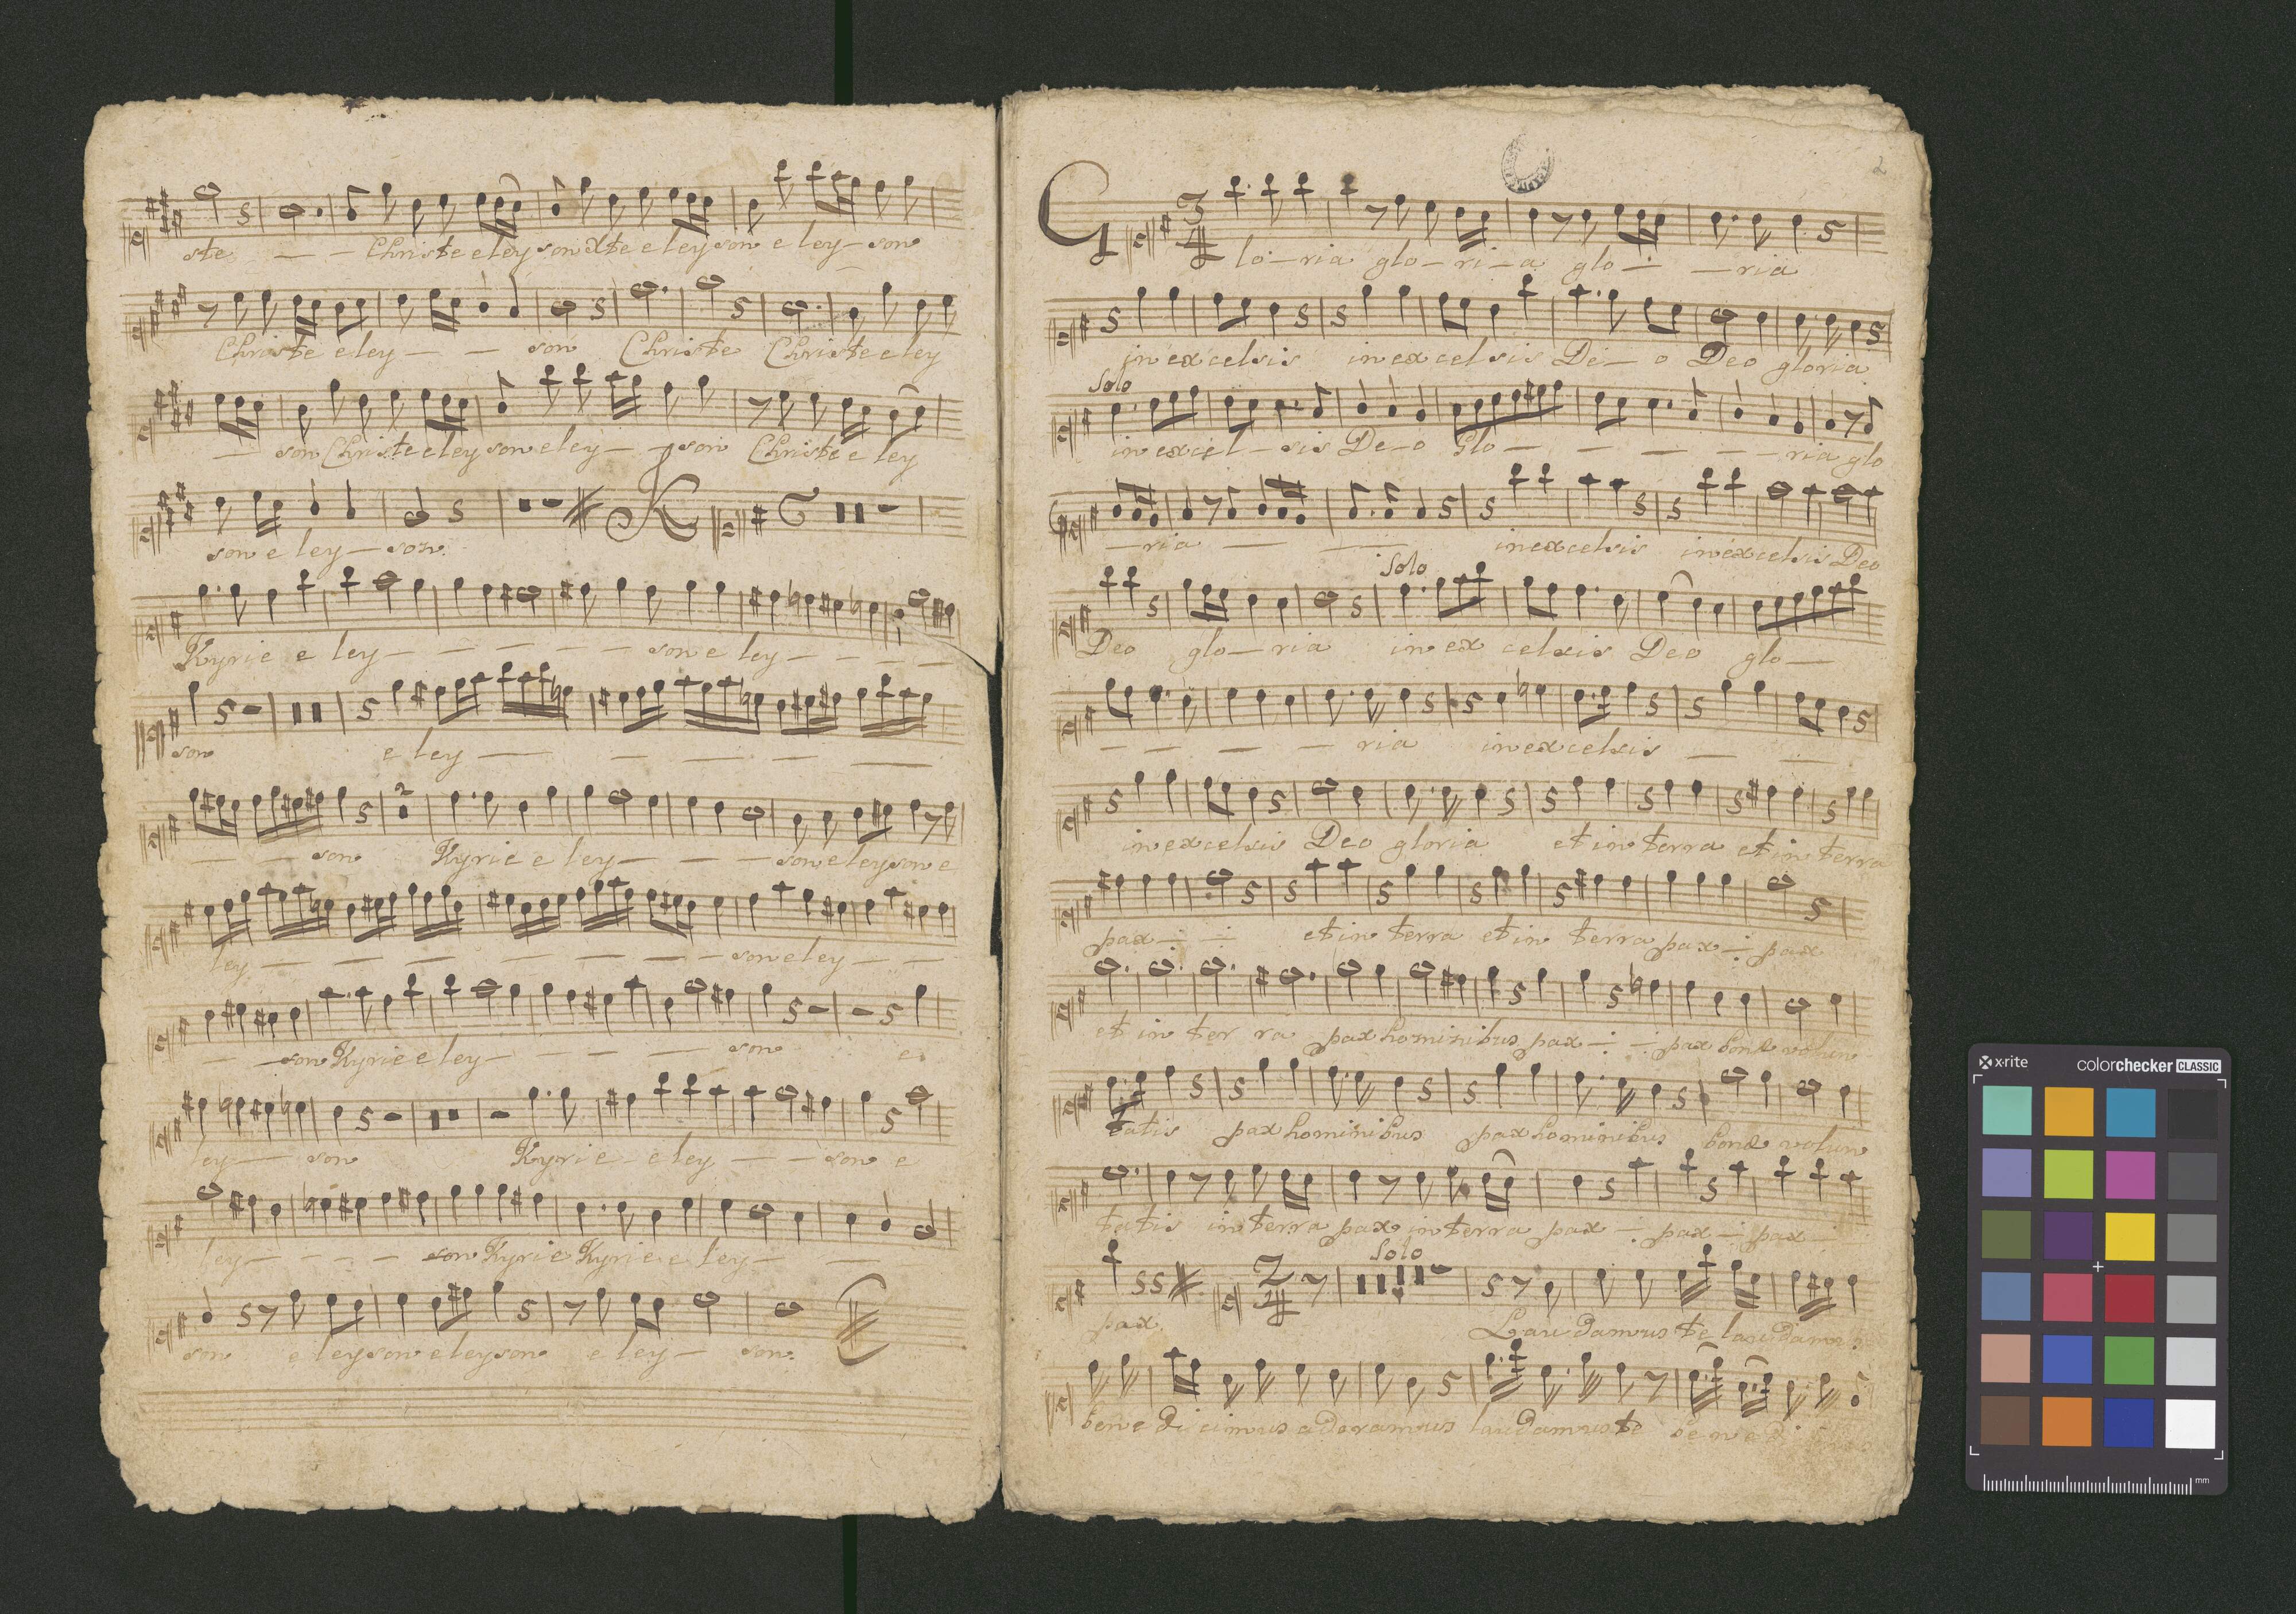 ste — — Christe eley son Xte e ley son e ley — son
Christe eley — — son Christe Christe e ley
— son Christe eley son eley — — son Christe e ley
son e ley — son. K
Kyrie e ley — — — — — son e ley — — — —
son e ley — — — — —
— — son Kyrie e ley — — — son e ley son e
ley — — — — — — — son e ley — —
— — son Kyrie e ley — — — — son e
ley — son Kyrie e ley — — son e
ley — — — — son Kyrie Kyrie e ley — —
son e ley son e ley son e ley — son.
2
G lo — ria glo — ri — a glo — — ria
in excelsis in excelsis De — o Deo gloria
Solo
in excel — sis De — o Glo — — — — — ria glo
— ria — — in excelsis in excelsis Deo
Solo
Deo glo — ria in ex celsis Deo glo —
— — — — ria in excelsis — —
in excelsis Deo gloria et in terra et in terra
pax — et in terra et in terra pax — pax
et in ter ra pax hominibus pax — pax bonæ volun
tatis pax hominibus pax hominibus bonæ volun
tatis in terra pax in terra pax pax — pax —
Solo
pax. Lau damus te laudamus
bene di cimus adoramus laudamus te bene di
x-rite colorchecker CLASSIC
mm